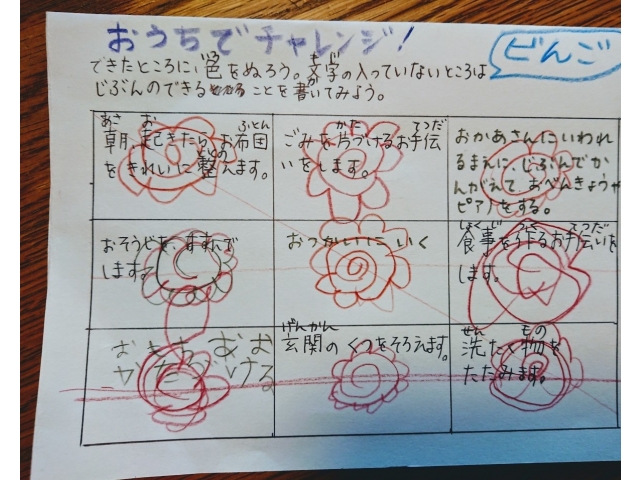 おうちでチャレンジ!
ビンゴ
できたところに、色をぬろう。文字の入っていないところは
じぶんのできることを書いてみよう。
朝、起きたら、お布団
をきれいに整えます。
ごみを片づけるお手伝
いをします。
おかあさんにいわれ
るまえに、じぶんでか
んがえて、おべんきょうや
ピアノをする。
おそうじを、すすんで
します。
おつかいにいく
食事を作るお手伝いを
します。
おもちゃをおお
かたづける
玄関のくつをそろえます。
洗たく物を
たたみます。